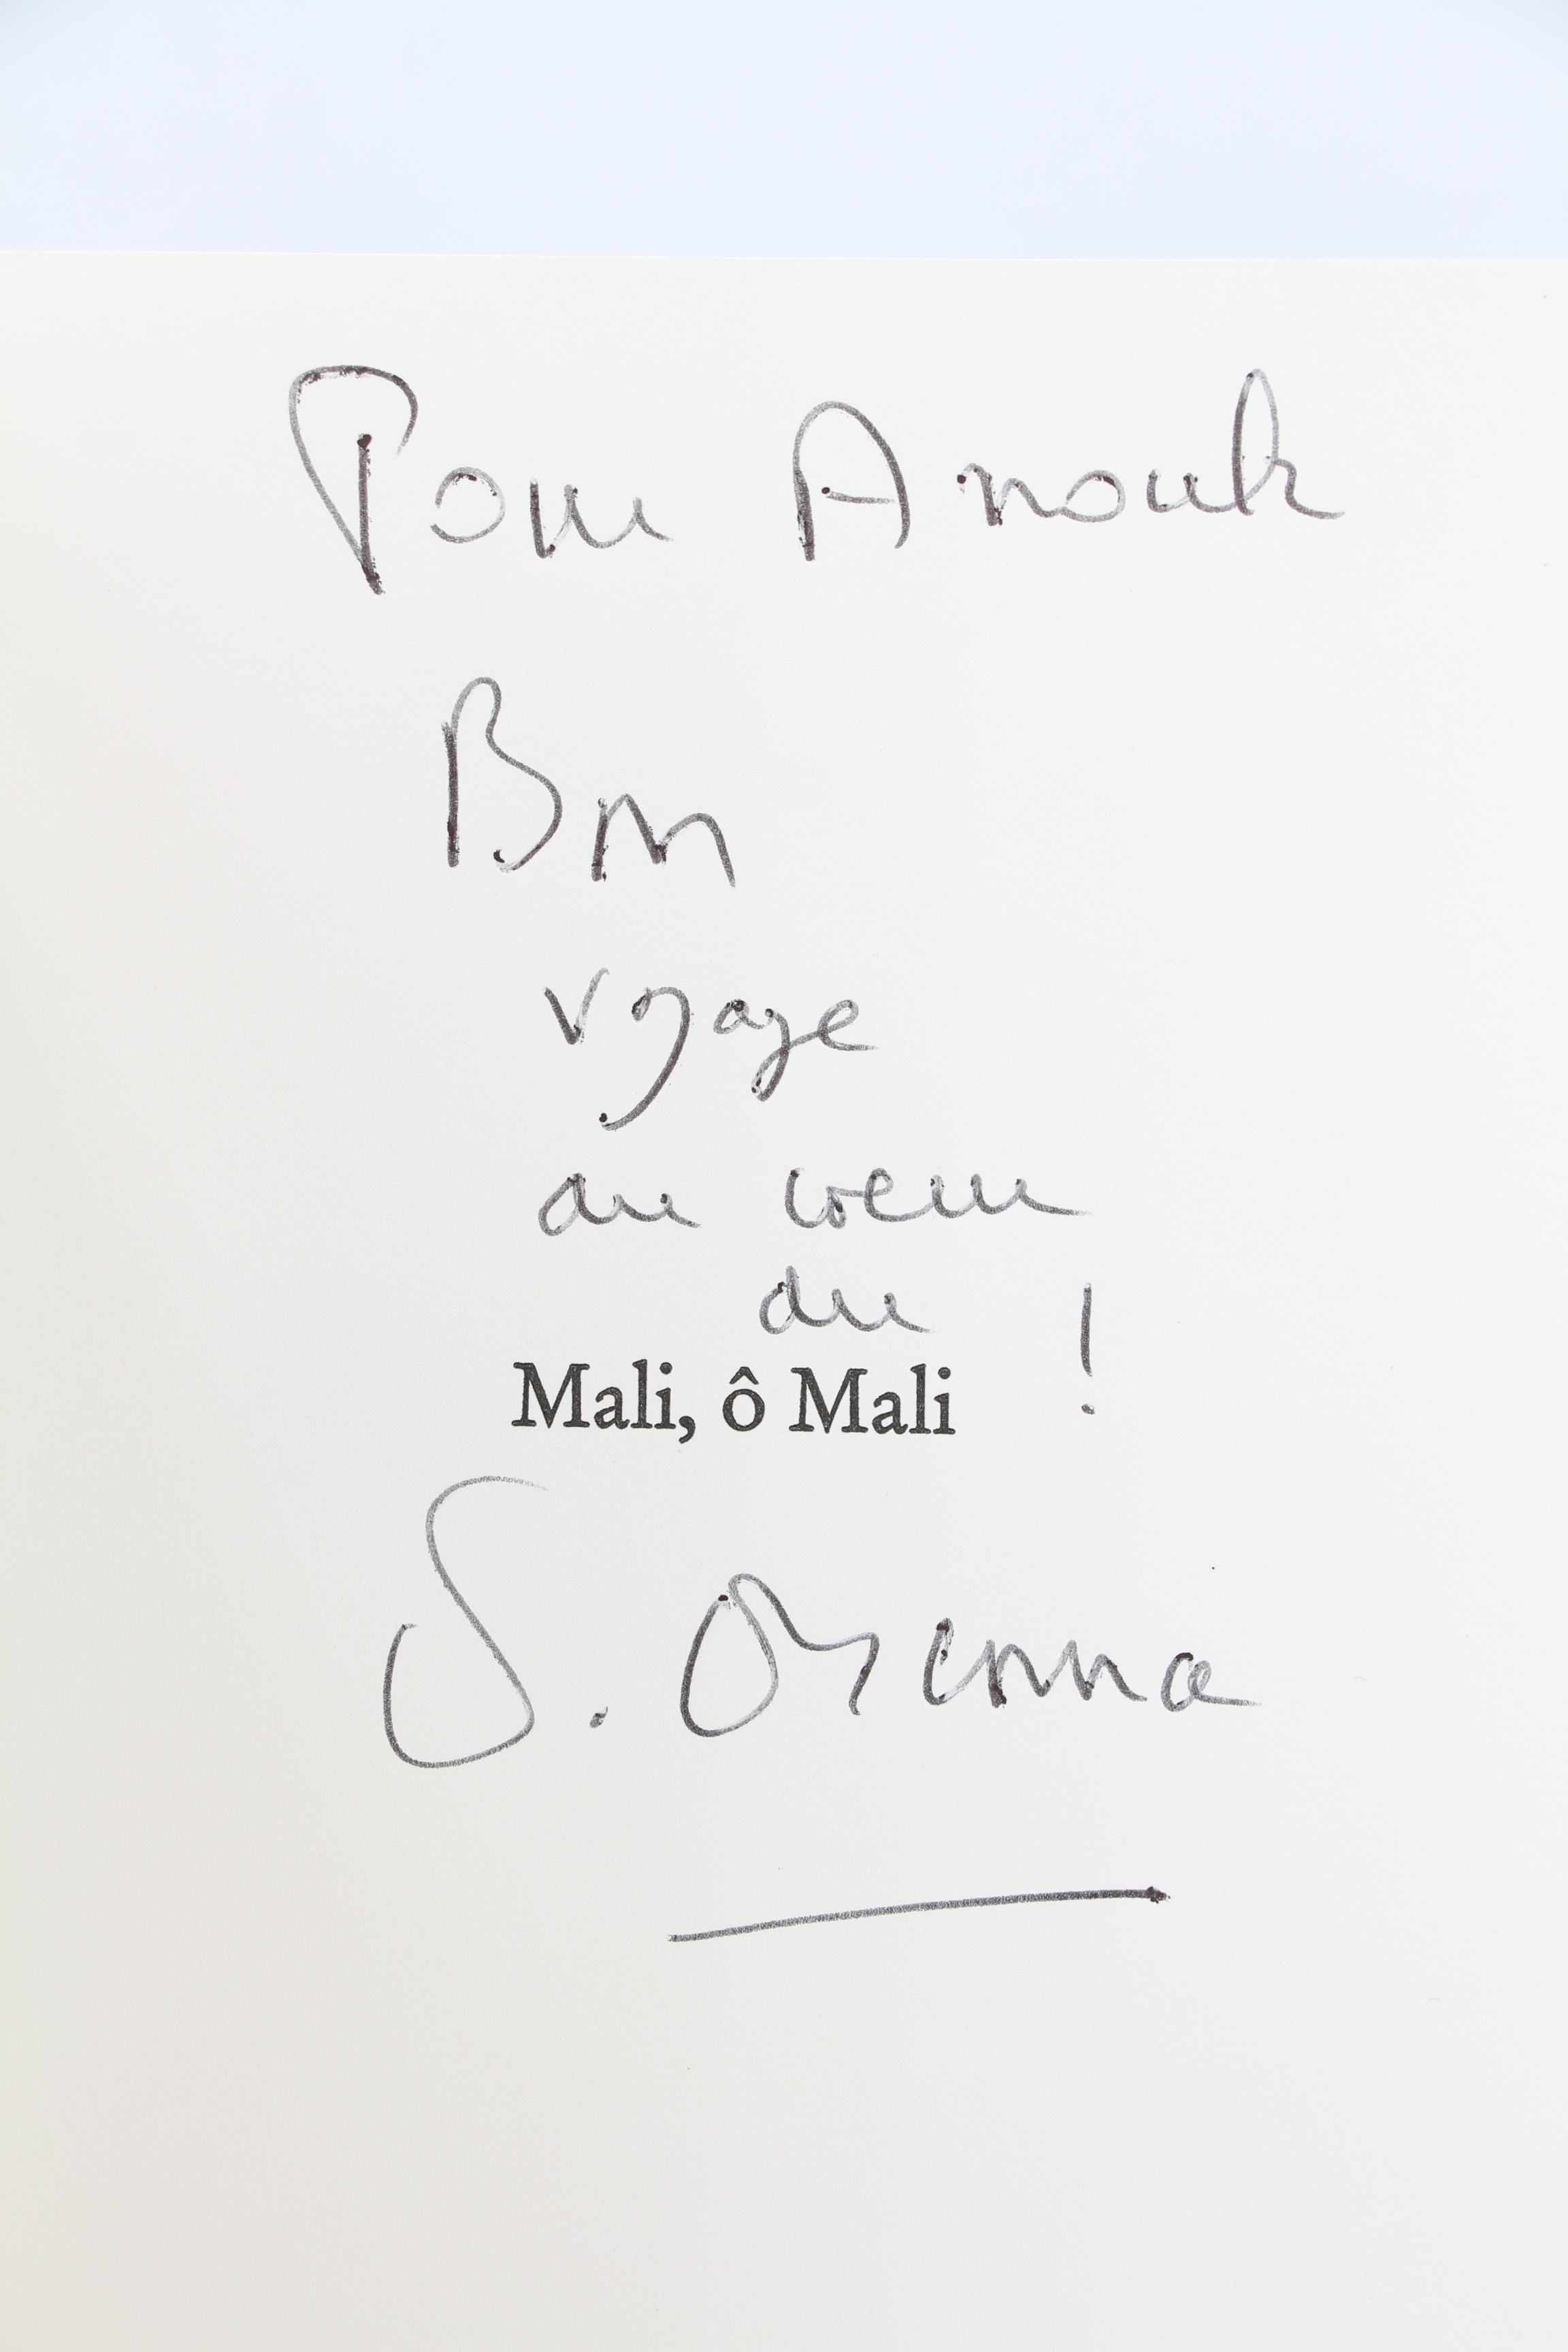 Pour Anouk
Bon
voyage
au coeur
du !
Mali, ô Mali
S. Orsenna